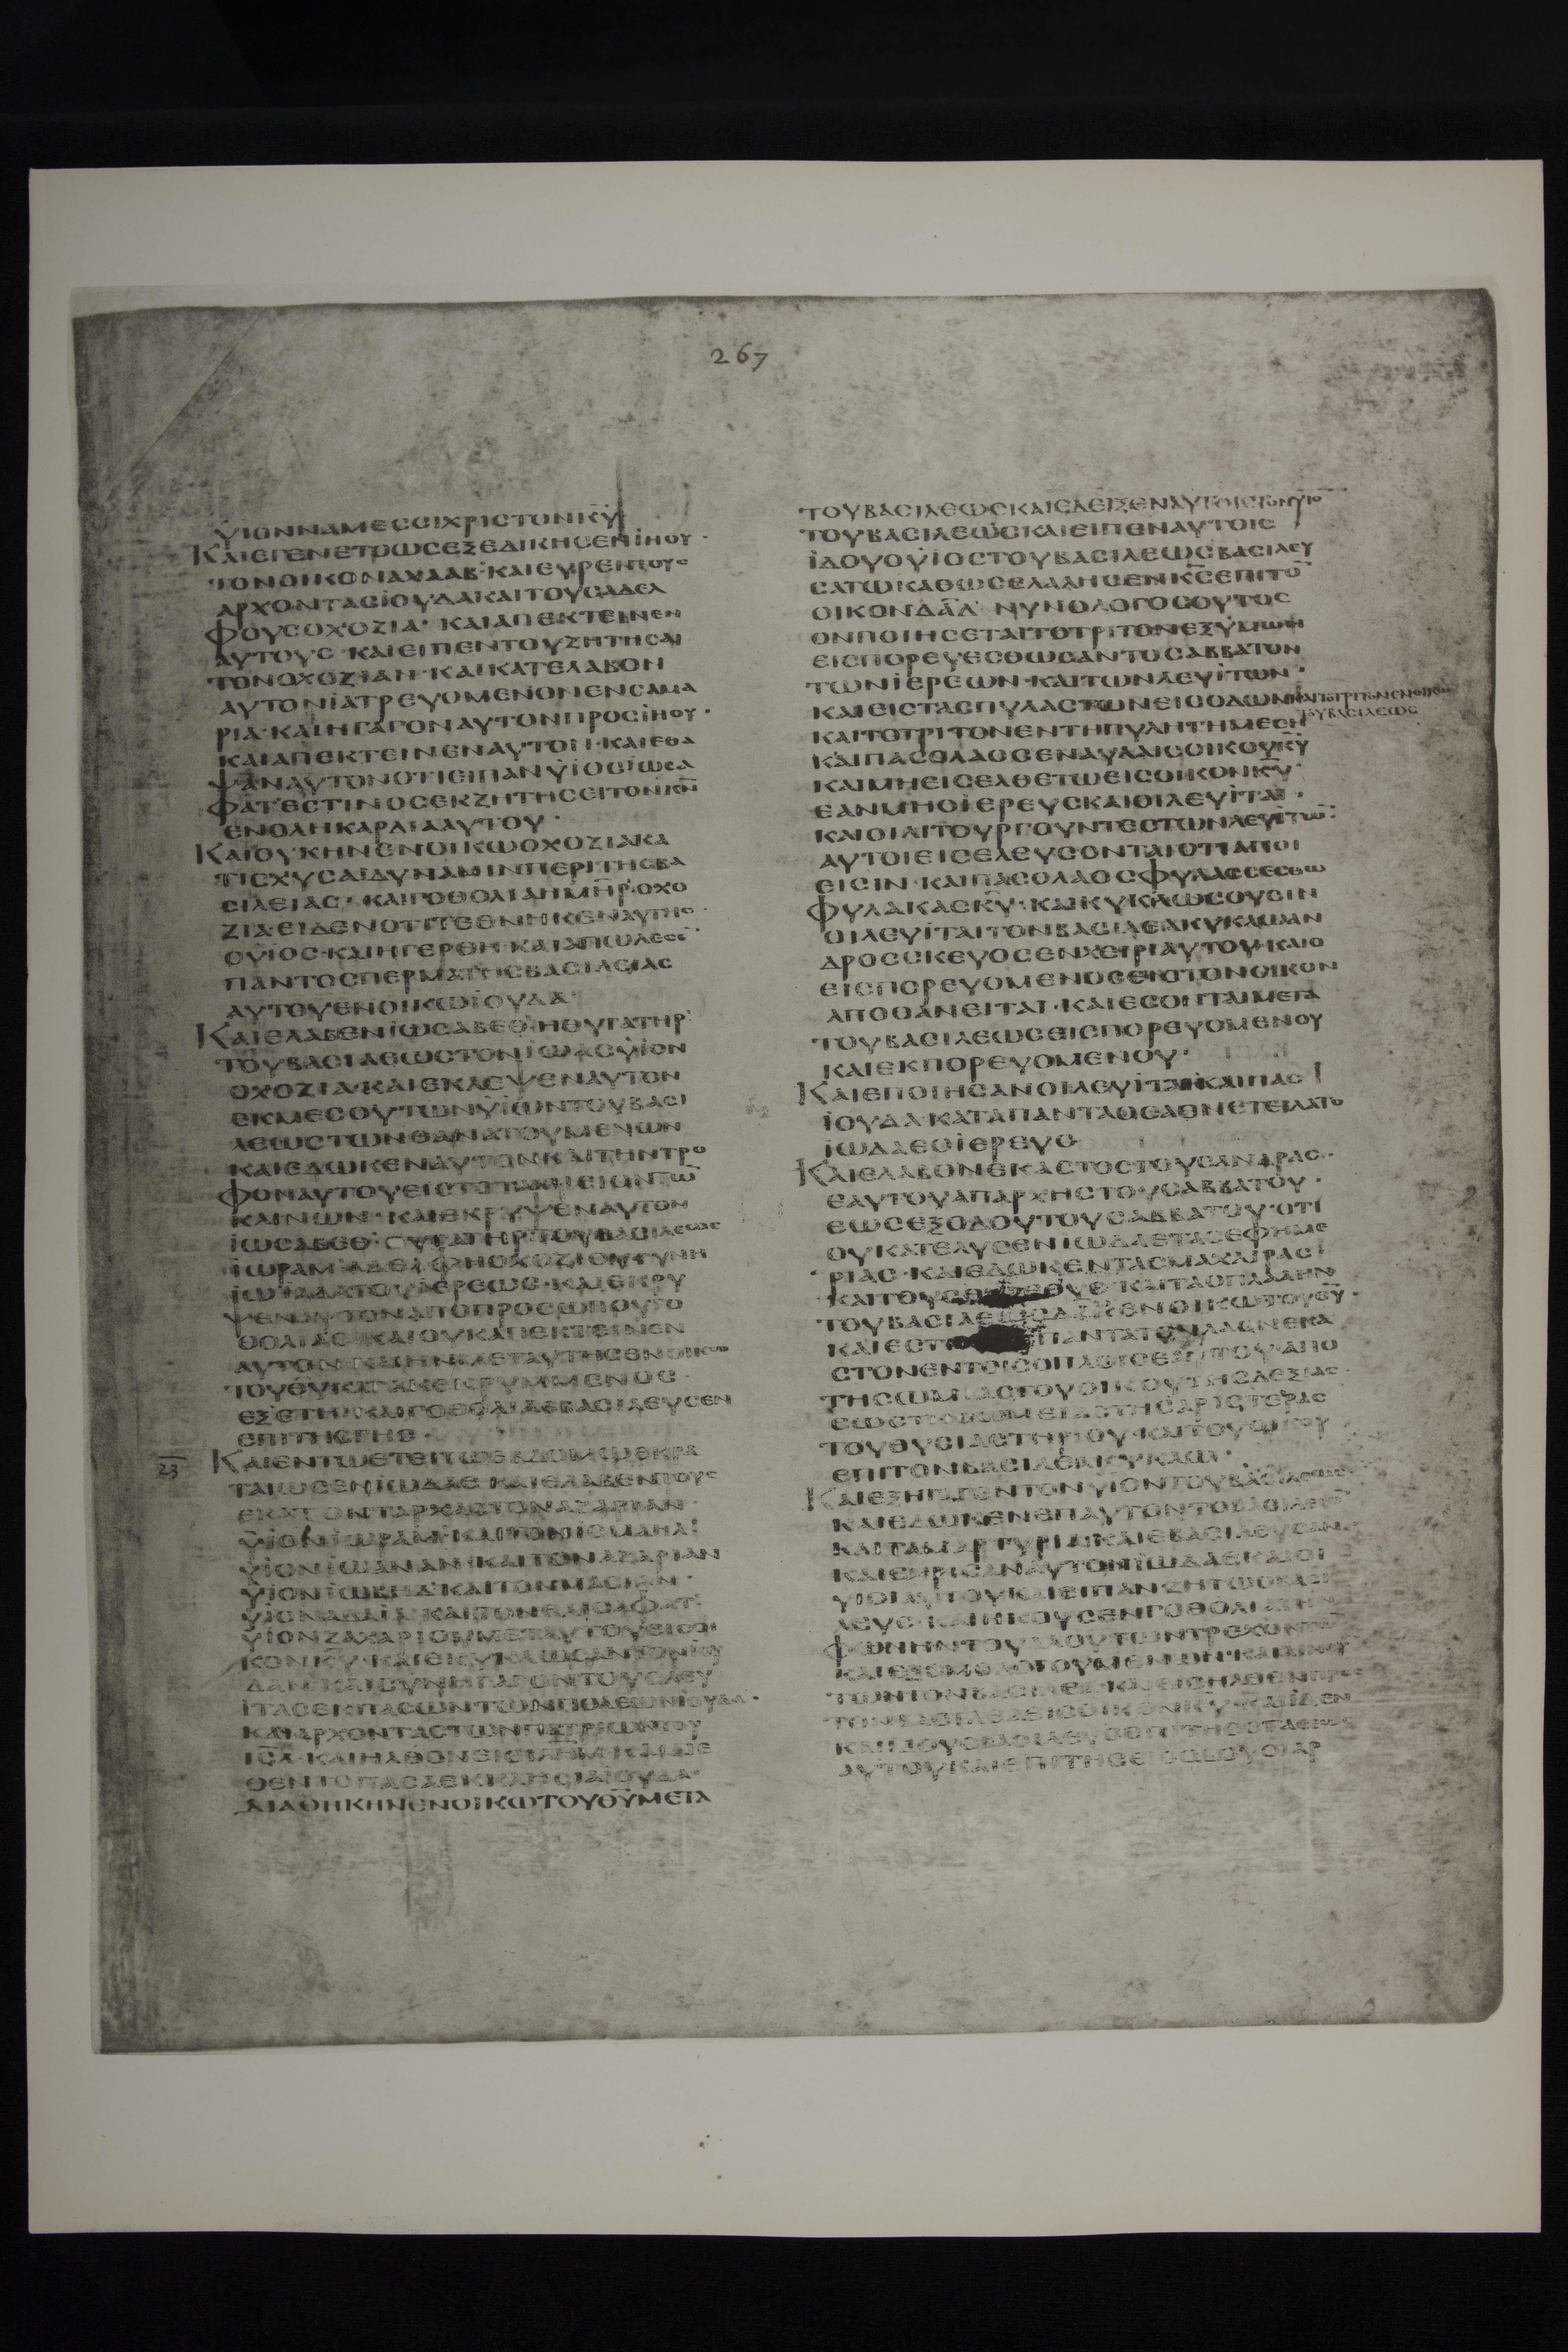 267
ΥΙΟΝΝΑΜΕCCΙΧΡΙCΤΟΝΚΥ
ΚΑΙΕΓΕΝΕΤΟΩCΕΞΕΔΙΚΗCΕΝΙΗΟΥ·
ΤΟΝΟΙΚΟΝΑΧΑΑΒ·ΚΑΙΕΥΡΕΝΤΟΥC
ΑΡΧΟΝΤΑCΙΟΥΔΑΚΑΙΤΟΥCΑΔΕΛ
ΦΟΥCΟΧΟΖΙΑ·ΚΑΙΑΠΕΚΤΕΙΝΕΝ
ΑΥΤΟΥC·ΚΑΙΕΙΠΕΝΤΟΥΖΗΤΗCΑΙ
ΤΟΝΟΧΟΖΙΑΝ·ΚΑΙΚΑΤΕΛΑΒΟΝ
ΑΥΤΟΝΙΑΤΡΕΥΟΜΕΝΟΝΕΝCΑΜΑ
ΡΙΑ·ΚΑΙΗΓΑΓΟΝΑΥΤΟΝΠΡΟCΙΗΟΥ·
ΚΑΙΑΠΕΚΤΕΙΝΕΝΑΥΤΟΝ·ΚΑΙΕΘΑ
ΨΑΝΑΥΤΟΝΟΤΙΕΙΠΑΝΥΙΟCΙΩCΑ
ΦΑΤΕCΤΙΝΟCΕΚΖΗΤΗCΕΙΤΟΝΚΝ
ΕΝΟΛΗΚΑΡΔΙΑΑΥΤΟΥ·
ΚΑΙΟΥΚΗΝΕΝΟΙΚΩΟΧΟΖΙΑΚΑ
ΤΙCΧΥCΑΙΔΥΝΑΜΙΝΠΕΡΙΤΗCΒΑ
CΙΛΕΙΑC·ΚΑΙΓΟΘΟΛΙΑΗΜΗΡΟΧΟ
ΖΙΑΕΙΔΕΝΟΤΙΤΕΘΝΗΚΕΝΑΥΤΗC
ΟΥΙΟC·ΚΑΙΗΓΕΡΘΗ·ΚΑΙΑΠΩΛΕCΕ
ΠΑΝΤΟCΠΕΡΜΑΤΗCΒΑCΙΛΕΙΑC
ΑΥΤΟΥΕΝΟΙΚΩΙΟΥΔΑ·
ΚΑΙΕΛΑΒΕΝΙΩCΑΒΕΘΗΘΥΓΑΤΗΡ
ΤΟΥΒΑCΙΛΕΩCΤΟΝΙΩΑCΥΙΟΝ
ΟΧΟΖΙΑ·ΚΑΙΕΚΛΕΨΕΝΑΥΤΟΝ
ΕΚΜΕCΟΥΤΩΝΥΙΩΝΤΟΥΒΑCΙ
ΛΕΩCΤΩΝΘΑΝΑΤΟΥΜΕΝΩΝ
ΚΑΙΕΔΩΚΕΝΑΥΤΟΝΚΑΙΤΗΝΤΡΟ
ΦΟΝΑΥΤΟΥΕΙC
ΚΛΙΝΩΝ·ΚΑΙΕΚΡΥΨΕΝΑΥΤΟΝ
ΙΩCΑΒΕΘ·ΘΥΓΑΤΗΡΤΟΥΒΑCΙΛΕΩC
ΙΩΡΑΜΑΔΕΛΦΗΟΧΟΖΙΟΥΓΥΝΗ
ΙΩΔΑΕΤΟΥΙΕΡΕΩC·ΚΑΙΕΚΡΥ
ΨΕΝΑΥΤΟΝΑΠΟΠΡΟCΩΠΟΥΓΟ
ΘΟΛΙΑC·ΚΑΙΟΥΚΑΠΕΚΤΕΙΝΕΝ
ΑΥΤΟΝ·ΚΑΙΗΝΜΕΤΑΥΤΗCΕΝΟΙΚΩ
ΤΟΥΘΥΚΑΤΑΚΕΚΡΥΜΜΕΝΟC·
ΕΞΕΤΗ·ΚΑΙΓΟΘΟΛΙΑΕΒΑCΙΛΕΥCΕΝ
ΕΠΙΤΗCΓΗC·
23
ΚΑΙΕΝΤΩΕΤΕΙΤΩΕΒΔΟΜΩΕΚΡΑ
ΤΑΙΩCΕΝΙΩΔΑΕ·ΚΑΙΕΛΑΒΕΝΤΟΥC
ΕΚΑΤΟΝΤΑΡΧΑCΤΟΝΑΖΑΡΙΑΝ
ΥΙΟΝΙΩΡΑΜ·ΚΑΙΤΟΝΙCΜΑΗΛ
ΥΙΟΝΙΩΑΝΑΝ·ΚΑΙΤΟΝΑΖΑΡΙΑΝ
ΥΙΟΝΙΩΒΗΔ·ΚΑΙΤΟΝΜΑCΙΑΝ·
ΥΙΟΝΑΔΑΙΑ·ΚΑΙΤΟΝΕΛΙCΑΦΑΤ
ΥΙΟΝΖΑΧΑΡΙΟΥΜΕΤΑΥΤΟΥΕΙCΟΙ
ΚΟΝΚΥ·ΚΑΙΕΚΥΚΛΩCΑΝΤΟΝΙΟΥ
ΔΑΝ·ΚΑΙCΥΝΗΓΑΓΟΝΤΟΥCΛΕΥ
ΙΤΑCΕΚΠΑCΩΝΤΩΝΠΟΛΕΩΝΙΟΥΔΑ·
ΚΑΙΑΡΧΟΝΤΑCΤΩΝΠΑΤΡΙΩΝΤΟΥ
ΙCΛ·ΚΑΙΗΛΘΟΝΕΙCΙΛΗΜ·ΚΑΙΔΙΕ
ΘΕΝΤΟΠΑCΑΕΚΚΛΗCΙΑΙΟΥΔΑ·
ΔΙΑΘΗΚΗΝΕΝΟΙΚΩΤΟΥΘΥΜΕΤΑ
ΤΟΥΒΑCΙΛΕΩC·ΚΑΙΕΔΕΙΞΕΝΑΥΤΟΙCΤΟΝΥΙΟ
ΤΟΥΒΑCΙΛΕΩCΚΑΙΕΙΠΕΝΑΥΤΟΙC
ΙΔΟΥΟΥΙΟCΤΟΥΒΑCΙΛΕΩCΒΑCΙΛΕΥ
CΑΤΩΚΑΘΩCΕΛΑΛΗCΕΝΚCΕΠΙΤΟ
ΟΙΚΟΝΔΑΔ·ΝΥΝΟΛΟΓΟCΟΥΤΟC
ΟΝΠΟΙΗCΕΤΑΙΤΟΤΡΙΤΟΝΕΞΥΜΩΝ
ΕΙCΠΟΡΕΥΕCΘΩCΑΝΤΟCΑΒΒΑΤΟΝ
ΤΩΝΙΕΡΕΩΝ·ΚΑΙΤΩΝΛΕΥΙΤΩΝ·
ΚΑΙΕΙCΤΑCΠΥΛΑCΤΩΝΕΙCΟΔΩΝΚΑΙΤΟΤΡΙΤΟΝΕΝΟΙΚΩ
ΤΟΥΒΑCΙΛΕΩC
ΚΑΙΤΟΤΡΙΤΟΝΕΝΤΗΠΥΛΗΤΗΜΕCΗ
ΚΑΙΠΑCΟΛΑΟCΕΝΑΥΛΑΙCΟΙΚΟΥΚΥ
ΚΑΙΜΗΕΙCΕΛΘΕΤΩΕΙCΟΙΚΟΝΚΥ
ΕΑΝΜΗΟΙΕΡΕΥCΚΑΙΟΙΛΕΥΙΤΑΙ·
ΚΑΙΟΙΛΙΤΟΥΡΓΟΥΝΤΕCΤΩΝΛΕΥΙΤΩ·
ΑΥΤΟΙΕΙCΕΛΕΥCΟΝΤΑΙΟΤΙΑΓΙΟΙ
ΕΙCΙΝ·ΚΑΙΠΑCΟΛΑΟCΦΥΛΑCCΕCΘΩ
ΦΥΛΑΚΑCΚΥ·ΚΑΙΚΥΚΛΩCΟΥCΙΝ
ΟΙΛΕΥΙΤΑΙΤΟΝΒΑCΙΛΕΑΚΥΚΛΩΑΝ
ΔΡΟCCΚΕΥΟCΕΝΧΕΙΡΙΑΥΤΟΥ·ΚΑΙΟ
ΕΙCΠΟΡΕΥΟΜΕΝΟCΕΙCΤΟΝΟΙΚΟΝ
ΑΠΟΘΑΝΕΙΤΑΙ·ΚΑΙΕCΟΝΤΑΙΜΕΤΑ
ΤΟΥΒΑCΙΛΕΩCΕΙCΠΟΡΕΥΟΜΕΝΟΥ
ΚΑΙΕΚΠΟΡΕΥΟΜΕΝΟΥ·
ΚΑΙΕΠΟΙΗCΑΝΟΙΛΕΥΙΤΑΙΚΑΙΠΑC
ΙΟΥΔΑ·ΚΑΤΑΠΑΝΤΑΟCΑΕΝΕΤΕΙΛΑΤΟ
ΙΩΔΑΕΟΙΕΡΕΥC·
ΚΑΙΕΛΑΒΟΝΕΚΑCΤΟCΤΟΥCΑΝΔΡΑC·
ΕΑΥΤΟΥΑΠΑΡΧΗCΤΟΥCΑΒΒΑΤΟΥ·
ΕΩCΕΞΟΔΟΥΤΟΥCΑΒΒΑΤΟΥ·ΟΤΙ
ΟΥΚΑΤΕΛΥCΕΝΙΩΔΑΕΤΑCΕΦΗΜΕ
ΡΙΑC·ΚΑΙΕΔΩΚΕΝΤΑCΜΑΧΑΙΡΑC
ΚΑΙΤΟΥC ΚΑΙΤΑΟΠΛΑΑΗΝ
ΤΟΥΒΑCΙΛΕΩC ΕΝΟΙΚΩΤΟΥΘΥ·
ΚΑΙΕCΤ ΠΑΝΤΑΤΟΝΛΑΟΝΕΚΑ
CΤΟΝΕΝΤΟΙCΟΠΛΟΙC ΑΠΟ
ΤΗCΩΜΙΑCΤΟΥΟΙΚΟΥΤΗCΔΕΞΙΑC
ΕΩCΤΗCΩΜΕΙΑCΤΗCΑΡΙCΤΕΡΑC
ΤΟΥΘΥCΙΑCΤΗΡΙΟΥ·ΚΑΙΤΟΥΟΙΚΟΥ
ΕΠΙΤΟΝΒΑCΙΛΕΑΚΥΚΛΩ·
ΚΑΙΕΞΗΓΑΓΕΝΤΟΝΥΙΟΝΤΟΥΒΑCΙΛΕΩC
ΚΑΙΕΔΩΚΕΝΕΠΑΥΤΟΝΤΟΒΑCΙΛΕΙΟ
ΚΑΙΤΑΜΑΡΤΥΡΙΑ·ΚΑΙΕΒΑCΙΛΕΥCΑΝ
ΚΑΙΕΧΡΙCΑΝΑΥΤΟΝΙΩΔΑΕΚΑΙΟΙ
ΥΙΟΙΑΥΤΟΥΚΑΙΕΙΠΑΝΖΗΤΩΟΒΑCΙ
ΛΕΥC·ΚΑΙΗΚΟΥCΕΝΓΟΘΟΛΙΑΤΗΝ
ΦΩΝΗΝΤΟΥΛΑΟΥΤΩΝΤΡΕΧΟΝΤΩ
ΚΑΙΕΞΟΜΟΛΟΓΟΥΜΕΝΩΝ·ΚΑΙΑΙΝΟΥ
ΤΩΝΤΟΝΒΑCΙΛΕΑ·ΚΑΙΕΙCΗΛΘΕΝΠΡΟC
ΤΟΝΒΑCΙΛΕΑΕΙCΟΙΚΟΝΚΥ·ΚΑΙΙΔΕΝ
ΚΑΙΙΔΟΥΟΒΑCΙΛΕΥCΕΠΙΤΗCCΤΑCΕΩC
ΑΥΤΟΥΚΑΙΕΠΙΤΗCΕΙCΟΔΟΥΟΙΑΡ